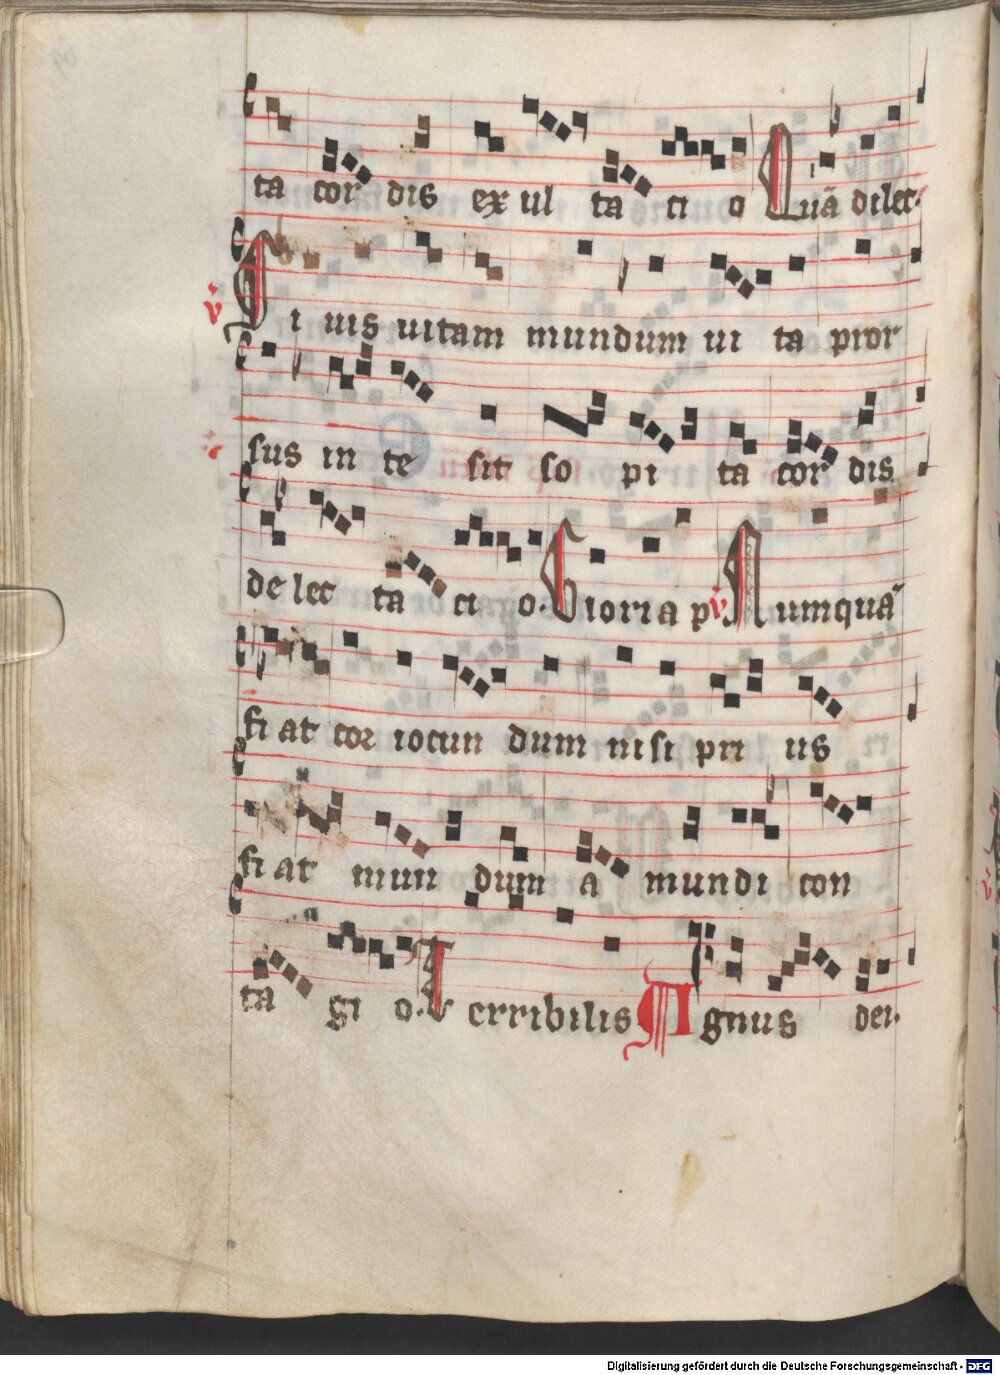 ta cor dis ex ul ta ci o Quā dilec
v Si uis uitam mundum ui ta pror
sus in te sit so pi ta cor dis
de lec ta ci o. Gloria p v Numquā
fi at cor iocun dum nisi pri us
fi at mun dum a mundi con
ta gi o. Terribilis Agnus dei.
Digitalisierung gefördert durch die Deutsche Forschungsgemeinschaft - DFG